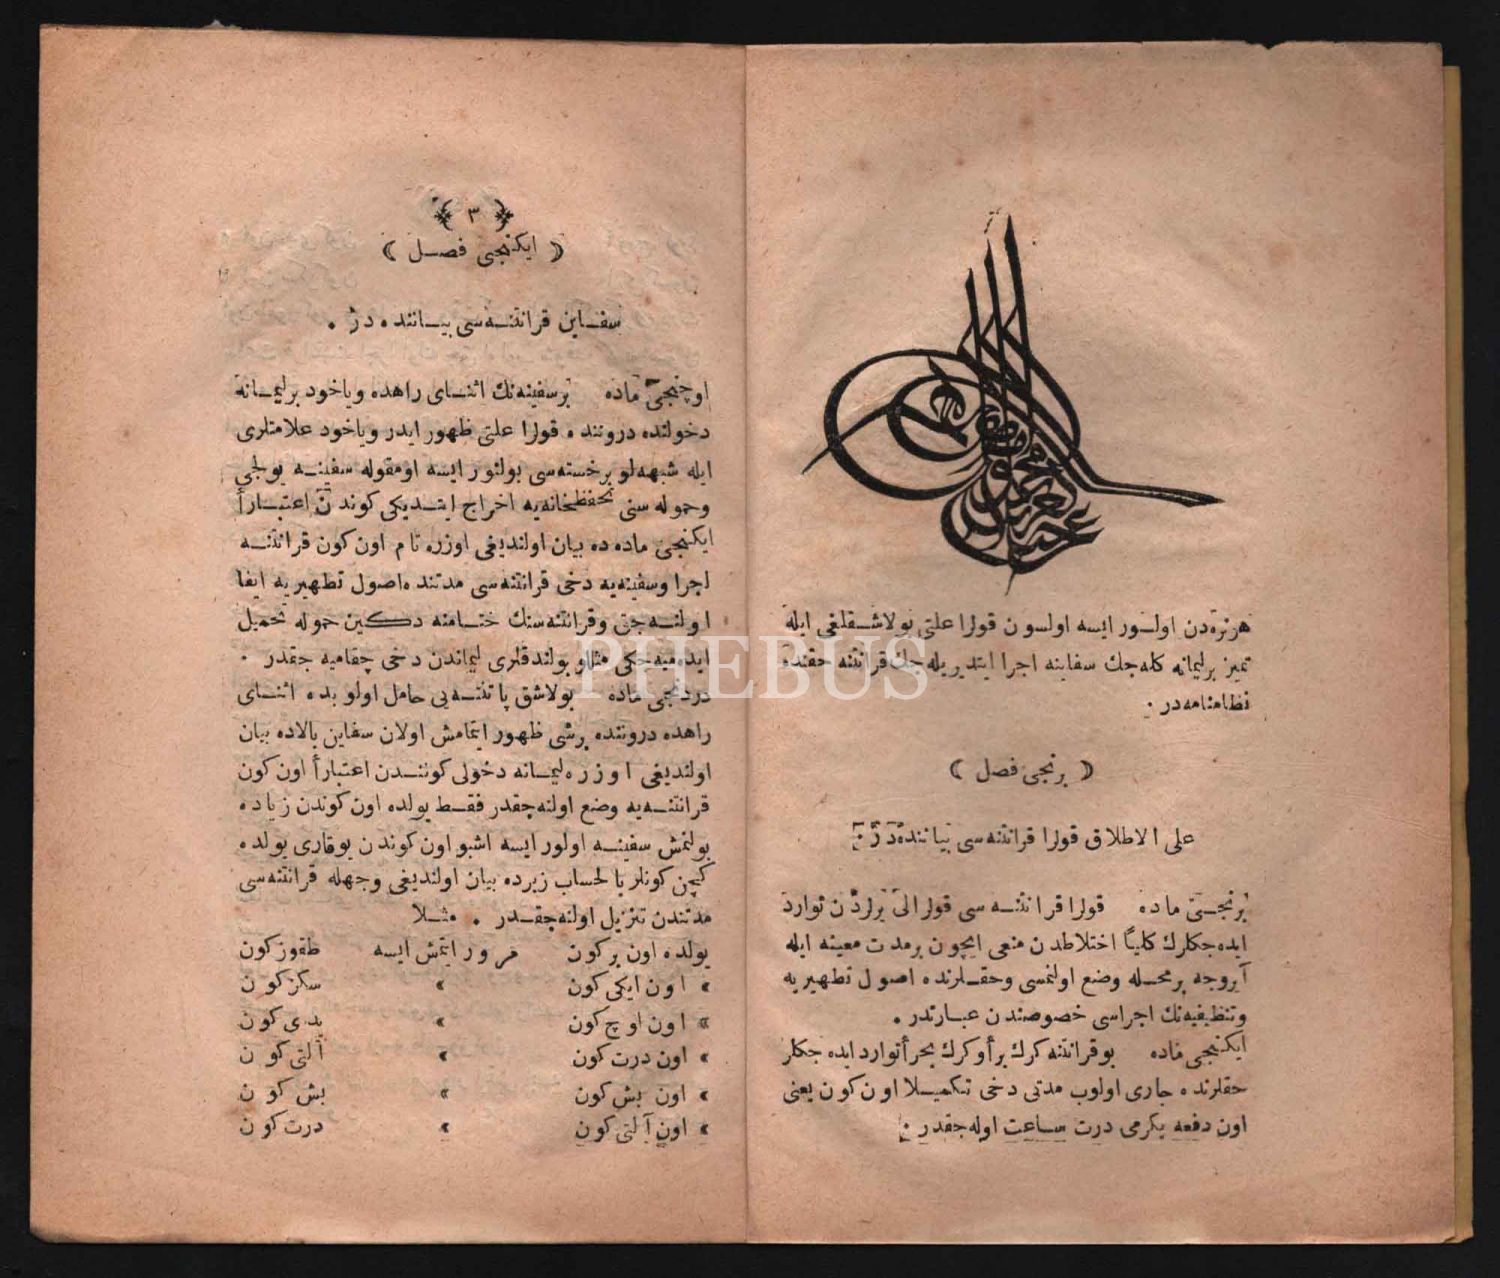 هرنره‌دن اولور ایسه اولسون قولرا علتی بولاشقلغی ایله
تمیز برلیمانه کله‌جك سفاینه اجرا ایتدیریله‌جك قرانتنه حقنده
نظامنامه‌در .
﴿ برنجی فصل ﴾
علی الاطلاق قولرا قرانتنه‌سی بیاننده‌در .
برنجی ماده قولرا قرانتنه‌سی قولرالی یرلردن توارد
ایده‌جکلرك کلیاً اختلاطدن منعی ایچون برمدت معینه ایله
آیروجه برمحله وضع اولنمسی وحقلرنده اصول تطهیریه
وتنظیفیه‌نك اجراسی خصوصندن عبارتدر .
ایکنجی ماده بوقرانتنه کرك براً وکرك بحراً توارد ایده‌جکلر
حقلرنده جاری اولوب مدتی دخی تکمیلا اون کون یعنی
اون دفعه یکرمی درت ساعت اوله‌جقدر .
﴿ ٣ ﴾
﴿ ایکنجی فصل ﴾
سفاین قرانتنه‌سی بیاننده‌در .
اوچنجی ماده برسفینه‌نك اثنای راهده ویاخود برلیمانه
دخولنده دروننده قولرا علتی ظهور ایدر ویاخود علامتلری
ایله شبهه‌لو برخسته‌سی بولنور ایسه اومقوله سفینه یولجی
وحموله‌سنی تحفظخانه‌یه اخراج ایتدیکی کوندن اعتباراً
ایکنجی ماده‌ده بیان اولندیغی اوزره تام اون کون قرانتنه
اجرا وسفینه‌یه دخی قرانتنه‌سی مدتنده اصول تطهیریه ایفا
اولنه‌جق وقرانتنه‌سنك ختامنه دکین حموله تحمیل
ایده‌میه‌جکی مثللو بولندقلری لیماندن دخی چقامیه‌جقدر .
دردنجی ماده بولاشق پاتنته‌یی حامل اولوبده اثنای
راهده دروننده برشی ظهور ایتمامش اولان سفاین بالاده بیان
اولندیغی اوزره لیمانه دخولی کوندن اعتباراً اون کون
قرانتنه‌یه وضع اولنه‌جقدر فقط یولده اون کوندن زیاده
بولنمش سفینه اولور ایسه اشبو اون کوندن یوقاری یولده
کچن کونلر بالحساب زیرده بیان اولندیغی وجهله قرانتنه‌سی
مدتندن تنزیل اولنه‌جقدر . مثلا
یولده اون برکون مرور ایتمش ایسه طقوز کون
» اون ایکی کون » سکز کون
» اون اوچ کون » یدی کون
» اون درت کون » آلتی کون
» اون بش کون » بش کون
» اون آلتی کون » درت کون
PHEBUS